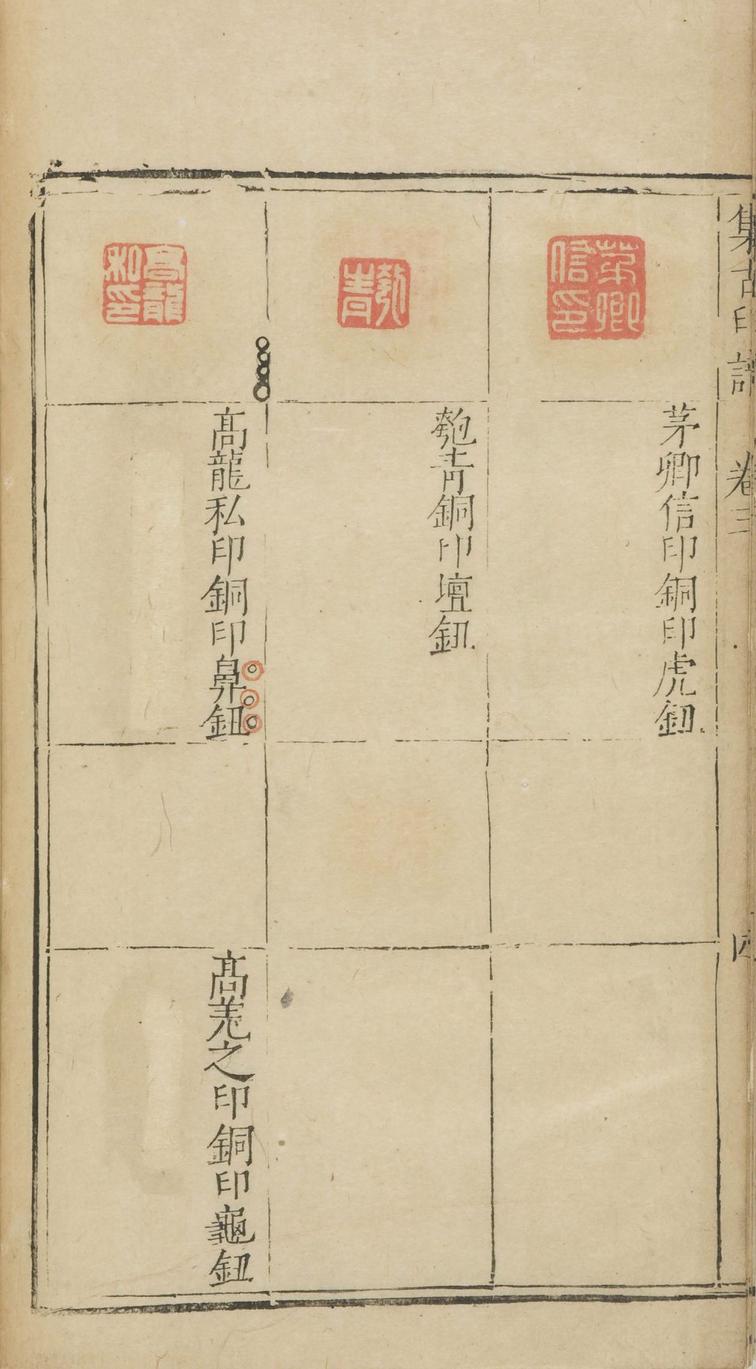 集古印譜 卷三
四
茅卿信印
茅卿信印銅印虎鈕
青
青銅印壇鈕
高龍私印
高龍私印銅印鼻鈕
高羌之印銅印龜鈕